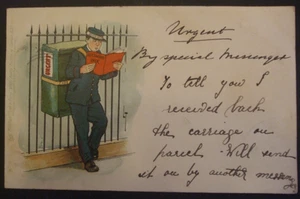 Urgent
By special Messenger
To tell you I
received back
the carriage on
parcel. Will send
it on by another messeng